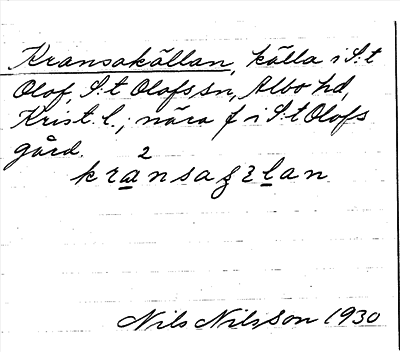 Kransakällan, källa i S:t
Olof, S:t Olofs sn, Albo hd,
Krist. l.; nära f i S:t Olofs
gård.
2
Nils Nilsson 1930